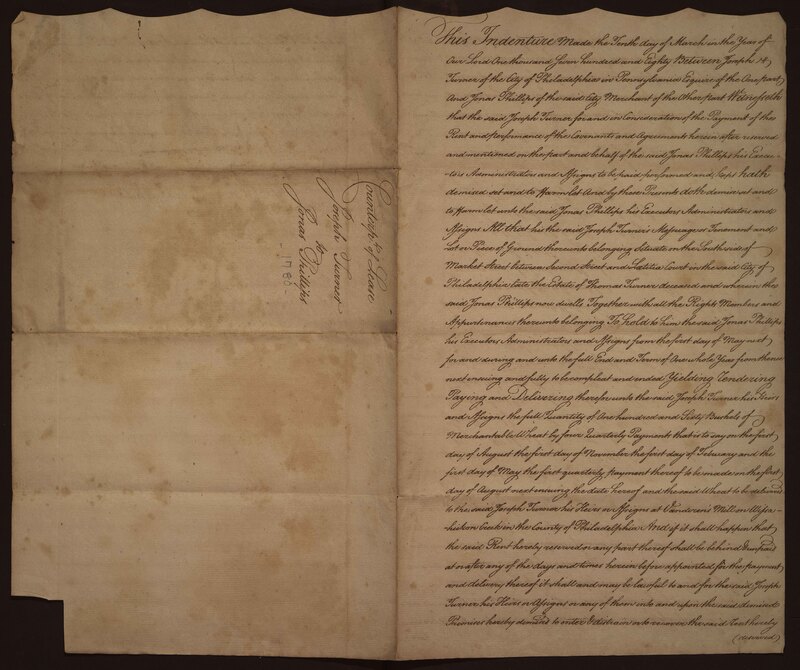 Counterp.t of Lease
Joseph Turner
to
Jonas Phillips
- 1780 -
This Indenture Made the Tenth day of March in the Year of
Our Lord One thousand Seven hundred and Eighty Between Joseph
Turner of the City of Philadelphia in Pennsylvania Esquire of the One part
And Jonas Phillips of the said City Merchant of the Other part Witnesseth
that the said Joseph Turner for and in Consideration of the Payment of the
Rent and performance of the Covenants and Agreements herein after reserved
and mentioned on the part and behalf of the said Jonas Phillips his Execu-
-tors Administrators and Assigns to be paid performed and kept hath
demised set and to Farm let And by these Presents doth demise set and
to Farm let unto the said Jonas Phillips his Executors Administrators and
Assigns All that his the said Joseph Turner's Messuage or Tenement and
Lot or Piece of Ground thereunto belonging Situate on the South side of
Market Street between Second Street and Lætitia Court in the said City of
Philadelphia Late the Estate of Thomas Turner deceased and wherein the
said Jonas Phillips now dwells Together with all the Rights Members and
Appurtenances thereunto belonging To hold to him the said Jonas Phillips
his Executors Administrators and Assigns from the first day of May next
for and during and unto the full End and Term of One whole Year from thence
next ensuing and fully to be compleat and ended Yielding Tendering
Paying and Delivering therefor unto the said Joseph Turner his Heirs
and Assigns the full Quantity of One hundred and Sixty Bushels of
Merchantable Wheat by four Quarterly Payments that is to say on the first
day of August the first day of November the first day of February and the
first day of May the first quarterly payment thereof to be made on the first
day of August next ensuing the date hereof and the said Wheat to be delivered
to the said Joseph Turner his Heirs or Assigns at Vanderens Mill on Wissa-
-hickon Creek in the County of Philadelphia And if it shall happen that
the said Rent hereby reserved or any part thereof shall be behind & unpaid
at or after any of the days and times herein before appointed for the payment
and delivery thereof it shall and may be lawful to and for the said Joseph
Turner his Heirs or Assigns or any of them into and upon the said demised
Premises hereby demised to enter & distrain or to recover the said Rent hereby
(reserved)